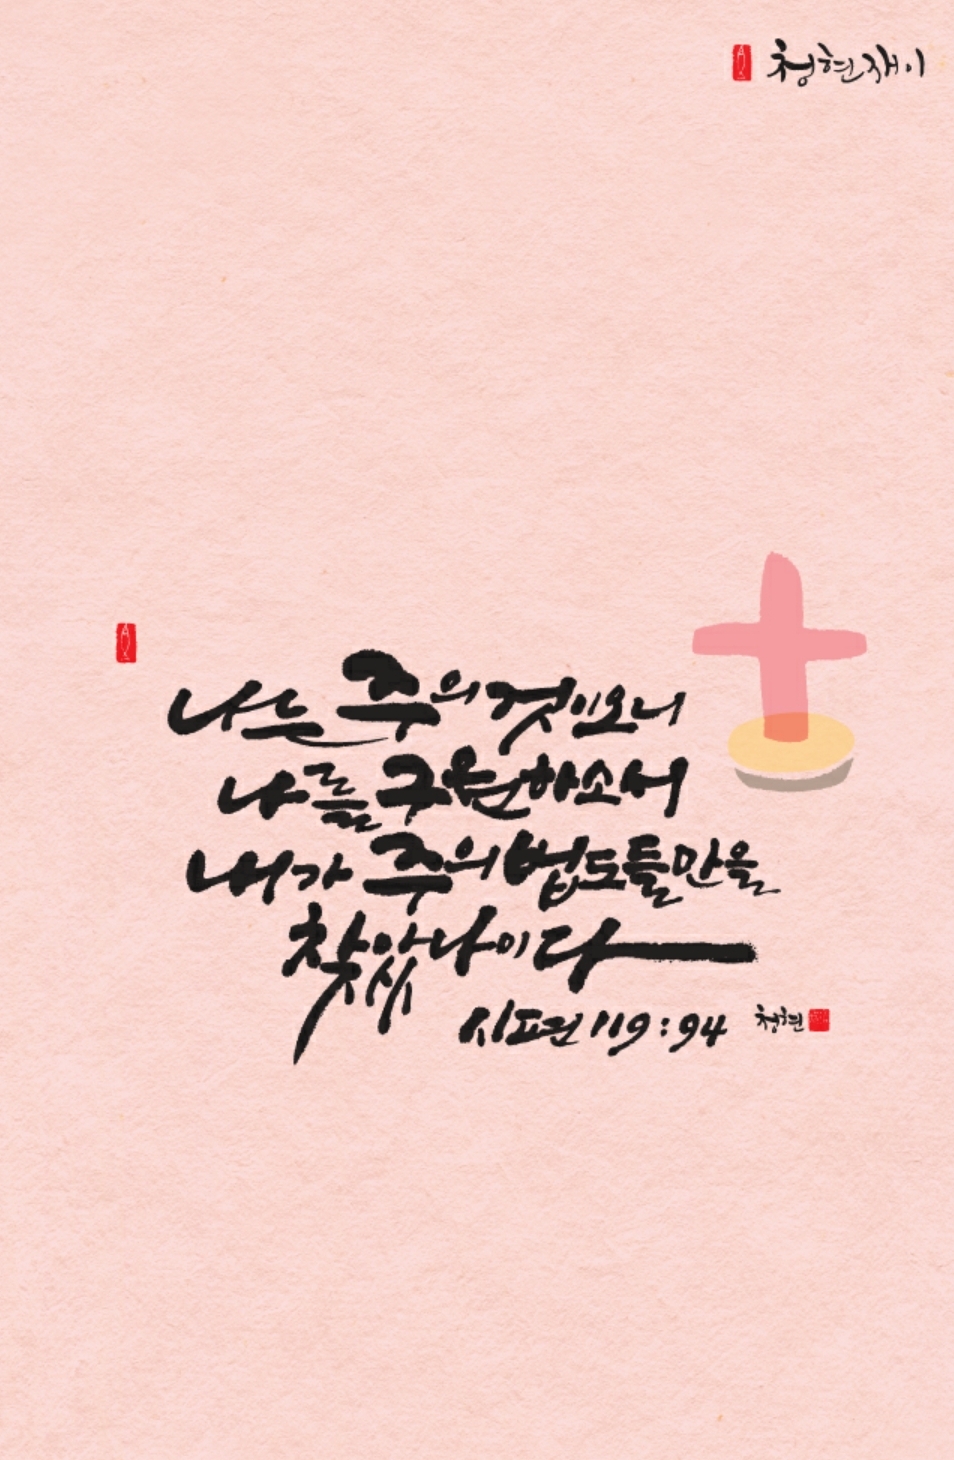 청현재이
나는 주의 것이오니
나를 구원하소서
내가 주의 법도들만을
찾았나이다
시편 119:94 청현